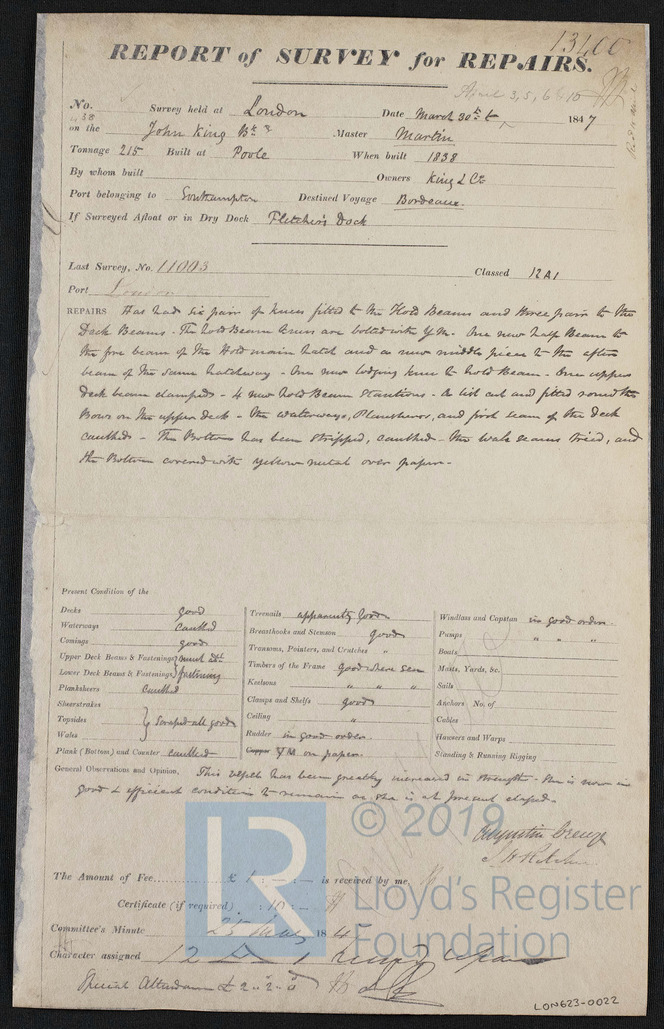 13400
REPORT of SURVEY for REPAIRS.
April 3, 5, 6 & 10
No. Survey held at London Date March 30th 1847
on the John King Bk Master Martin
Tonnage 215 Built at Poole When built 1838
By whom built Owners King & Co
Port belonging to Southampton Destined Voyage Bordeaux.
If Surveyed Afloat or in Dry Dock Fletcher's Dock
Last Survey, No. 11003 Classed 12A1
Port London
REPAIRS Has had six pair of knees fitted to the Hold Beams and three pair to the
Deck Beams - The hold Beam knees are bolted with Y.M. One new half Beam to
the fore beam of the Hold main hatch and a new middle piece to the after
beam of the same hatchway - One new lodging knee to hold Beam - One upper
deck beam clamped - 4 new hold Beam stantions - A list cut and fitted round the
Bows on the upper deck - the waterways, Plansheers, and first seam of the deck
caulked - The Bottom has been stripped, caulked - the wale seams tried, and
the Bottom covered with yellow metal over paper -
Present Condition of the
Decks good
Waterways caulked
Comings good
Upper Deck Beams & Fastenings
Lower Deck Beams & Fastenings fastening
Planksheers caulked
Sheerstrakes
Topsides } Scraped all good
Wales
Plank (Bottom) and Counter caulked
Treenails apparently good
Breasthooks and Stemson good
Transoms, Pointers, and Crutches "
Timbers of the Frame good where seen
Keelsons " " "
Clamps and Shelfs good
Ceiling "
Rudder in good order
Copper YM on paper.
Windlass and Capstan in good order
Pumps " " "
Boats
Masts, Yards, &c.
Sails
Anchors No. of
Cables
Hawsers and Warps
Standing & Running Rigging
General Observations and Opinion, This vessel has been greatly increased in strength - She is now in
good & efficient condition to remain as she is at present classed -
Augustin Creuze
© 2019
Lloyd's Register
Foundation
LR
The Amount of Fee £ 1 : — : — is received by me,
Certificate (if required) : 10 : —
Committee's Minute 25 May 184
Character assigned 12 A 1
Special Attendance £ 2 " 2 " 0
LON623-0022